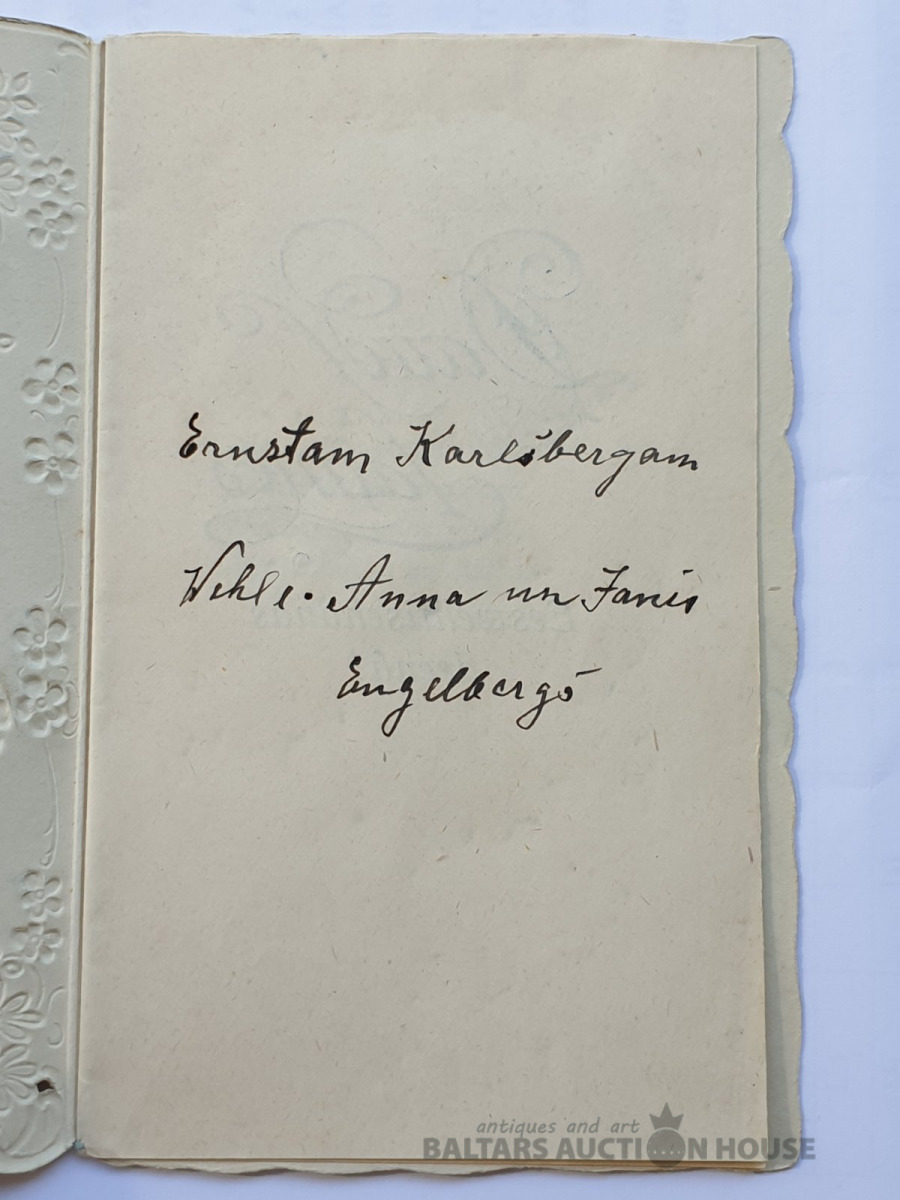 Ernstam Karlsbergam
Wehle. Anna un Janis
Engelbergs
antiques and art
BALTARS AUCTION HOUSE